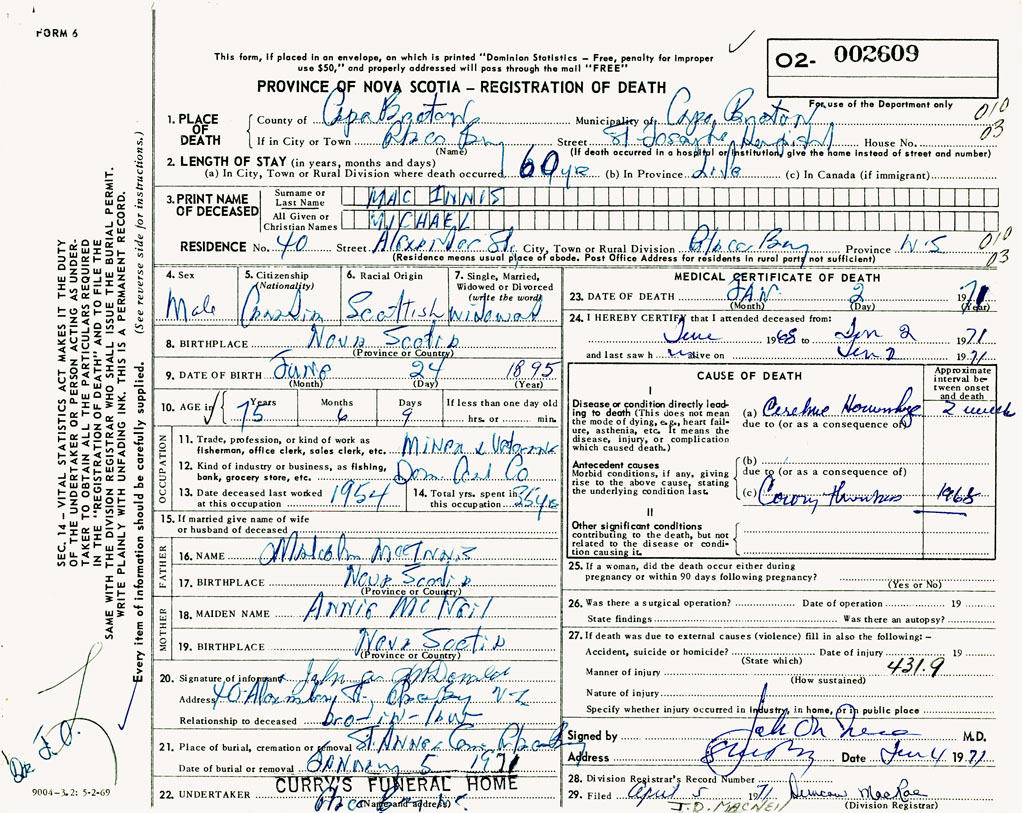 FORM 6
This form, if placed in an envelope, on which is printed "Dominion Statistics – Free, penalty for improper
use $50," and properly addressed will pass through the mail "FREE"
O2- 002609
PROVINCE OF NOVA SCOTIA – REGISTRATION OF DEATH
For use of the Department only
1. PLACE OF DEATH
County of Cape Breton Municipality of Cape Breton 010
If in City or Town Glace Bay Street St Josephs Hospital House No. 03
(Name) (If death occurred in a hospital or institution, give the name instead of street and number)
2. LENGTH OF STAY (in years, months and days)
(a) In City, Town or Rural Division where death occurred 60 yrs (b) In Province Life (c) In Canada (if immigrant)
3. PRINT NAME OF DECEASED
Surname or Last Name MAC INNIS
All Given or Christian Names MICHAEL
RESIDENCE No. 40 Street Alexander St. City, Town or Rural Division Glace Bay Province N.S 010
(Residence means usual place of abode. Post Office Address for residents in rural parts not sufficient) 03
4. Sex 5. Citizenship (Nationality) 6. Racial Origin 7. Single, Married, Widowed or Divorced (write the word)
Male Canadian Scottish widowed
8. BIRTHPLACE Nova Scotia
(Province or Country)
9. DATE OF BIRTH June 24 1895
(Month) (Day) (Year)
10. AGE in Years Months Days If less than one day old
75 6 9 hrs. or min.
OCCUPATION
11. Trade, profession, or kind of work as
fisherman, office clerk, sales clerk, etc. Miner &
12. Kind of industry or business, as fishing,
bank, grocery store, etc. Dom. Coal Co
13. Date deceased last worked at this occupation 1954 14. Total yrs. spent in this occupation 35 yrs
15. If married give name of wife
or husband of deceased
FATHER
16. NAME Malcolm MacInnis
17. BIRTHPLACE Nova Scotia
(Province or Country)
MOTHER
18. MAIDEN NAME Annie McNeil
19. BIRTHPLACE Nova Scotia
(Province or Country)
20. Signature of informant John McDonald
Address 40
Relationship to deceased bro-in-law
21. Place of burial, cremation or removal St. Annes Cem Glace Bay
Date of burial or removal January 5 1971
CURRY'S FUNERAL HOME
22. UNDERTAKER Glace Bay
(Name and address)
MEDICAL CERTIFICATE OF DEATH
23. DATE OF DEATH JAN 2 1971
(Month) (Day) (Year)
24. I HEREBY CERTIFY that I attended deceased from:
June 1968 to Jan 2 1971
and last saw h im alive on Jan 2 1971
CAUSE OF DEATH
Approximate interval between onset and death
I
Disease or condition directly leading to death (This does not mean the mode of dying, e.g., heart failure, asthenia, etc. It means the disease, injury, or complication which caused death.)
(a) Cerebral Hemorrhage 2 weeks
due to (or as a consequence of)
Antecedent causes
Morbid conditions, if any, giving rise to the above cause, stating the underlying condition last.
(b)
due to (or as a consequence of)
(c) Coronary thrombosis 1968
II
Other significant conditions
contributing to the death, but not related to the disease or condition causing it.
25. If a woman, did the death occur either during
pregnancy or within 90 days following pregnancy?
(Yes or No)
26. Was there a surgical operation? Date of operation 19
State findings Was there an autopsy?
27. If death was due to external causes (violence) fill in also the following: –
Accident, suicide or homicide? Date of injury 19
(State which) 431.9
Manner of injury
(How sustained)
Nature of injury
Specify whether injury occurred in industry, in home, or in public place
Signed by M.D.
Address Date Jan 4 1971
28. Division Registrar's Record Number
29. Filed April 5 1971 Duncan MacRae
J.D. MACNEIL (Division Registrar)
SEC. 14 – VITAL STATISTICS ACT MAKES IT THE DUTY
OF THE UNDERTAKER OR PERSON ACTING AS UNDERTAKER TO OBTAIN ALL THE PARTICULARS REQUIRED
IN THE "REGISTRATION OF DEATH" AND FILE THE
SAME WITH THE DIVISION REGISTRAR WHO SHALL ISSUE THE BURIAL PERMIT.
WRITE PLAINLY WITH UNFADING INK. THIS IS A PERMANENT RECORD.
Every item of information should be carefully supplied. (See reverse side for instructions.)
9004-3.2: 5-2-69